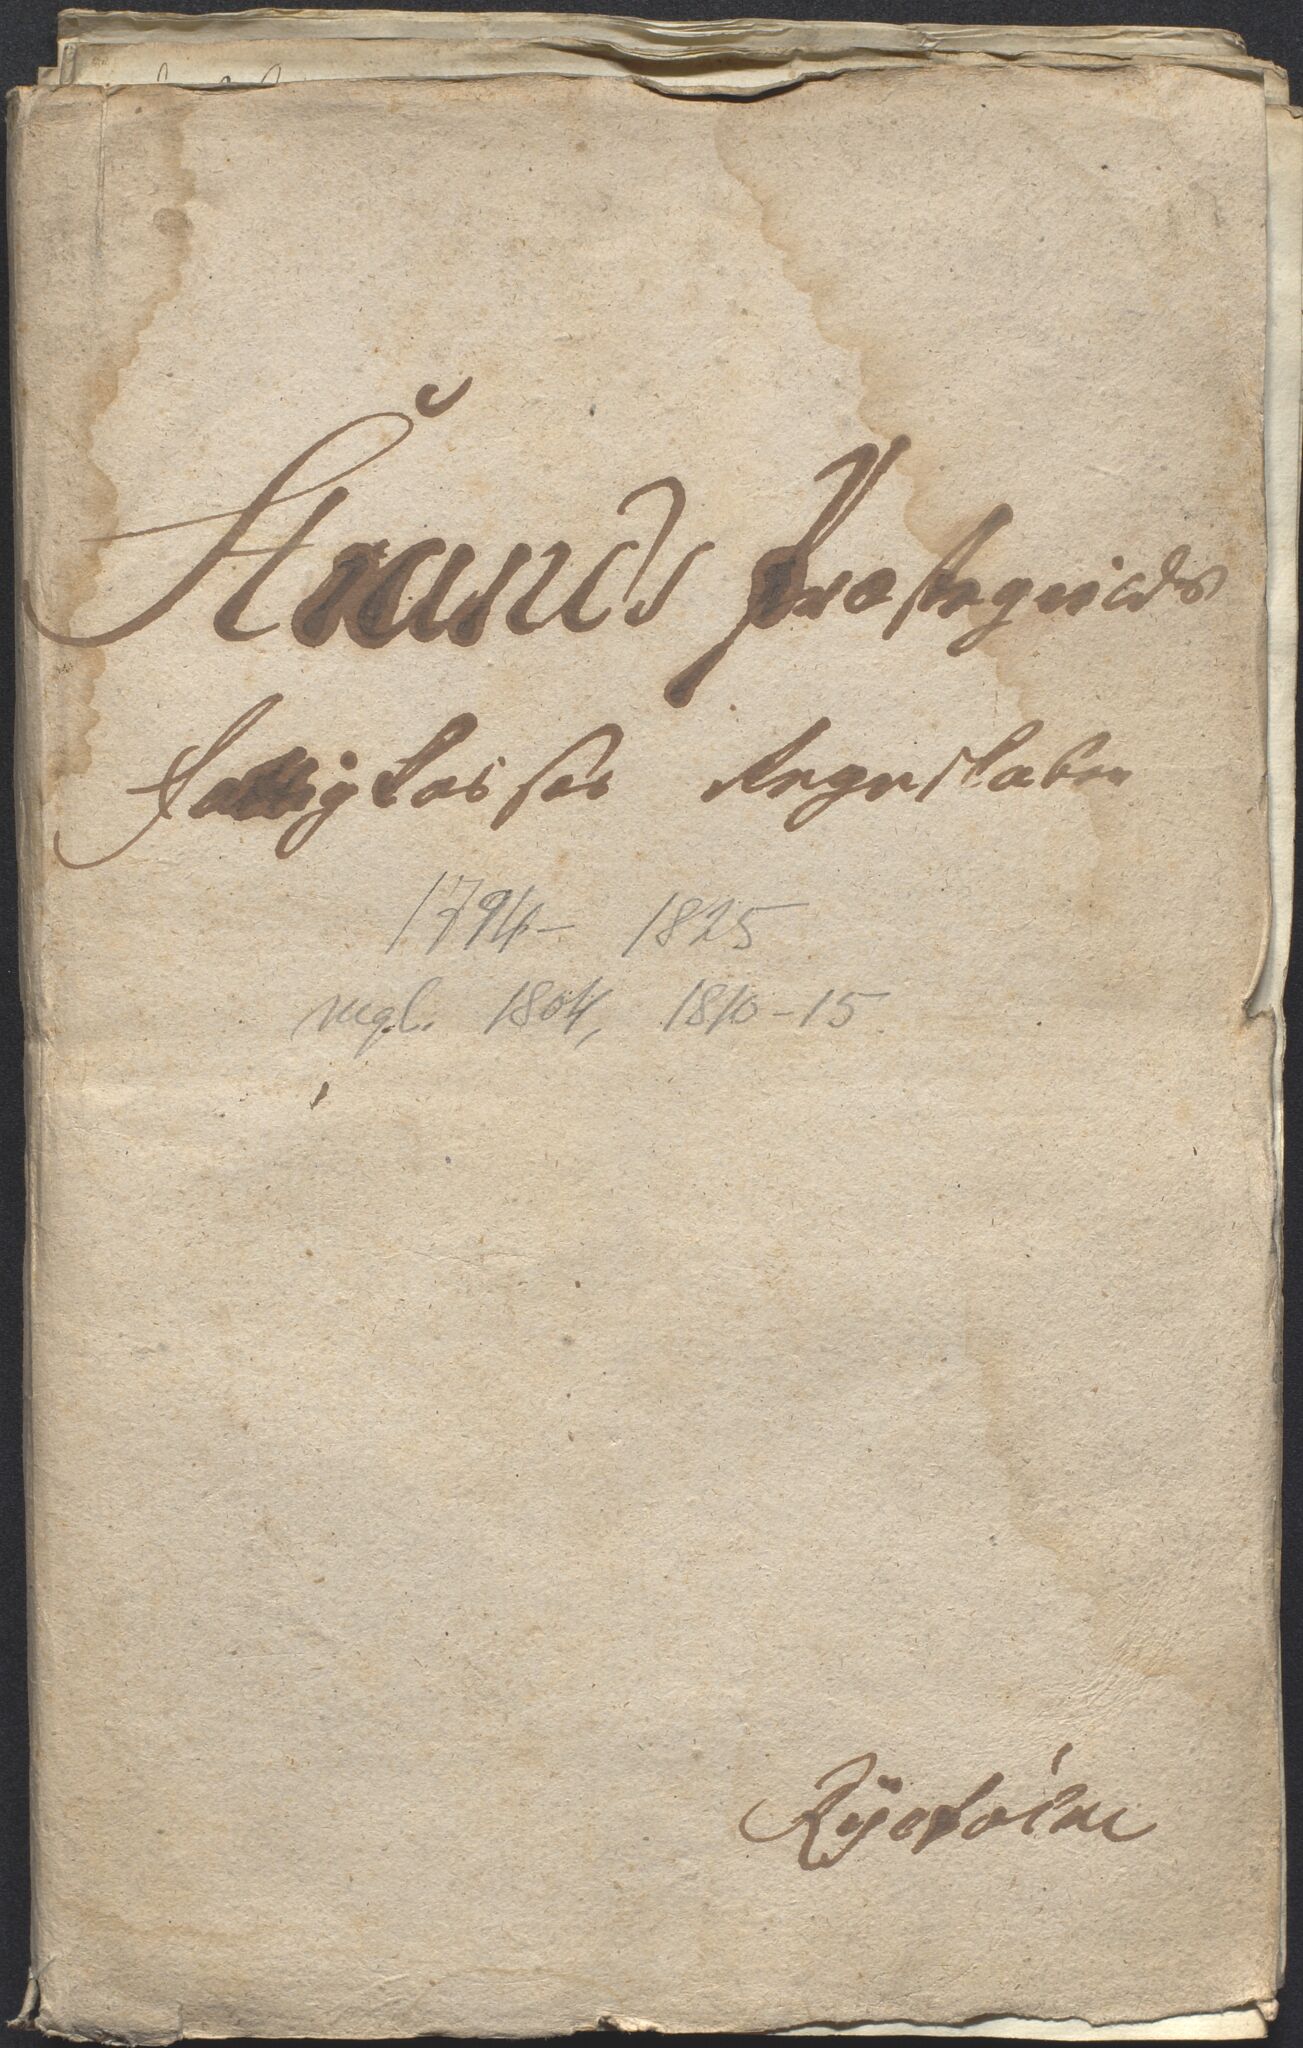 Strands Præstegields
fattigkasses Regnskaber
1794- 1825
mgl. 1804, 1810-15.